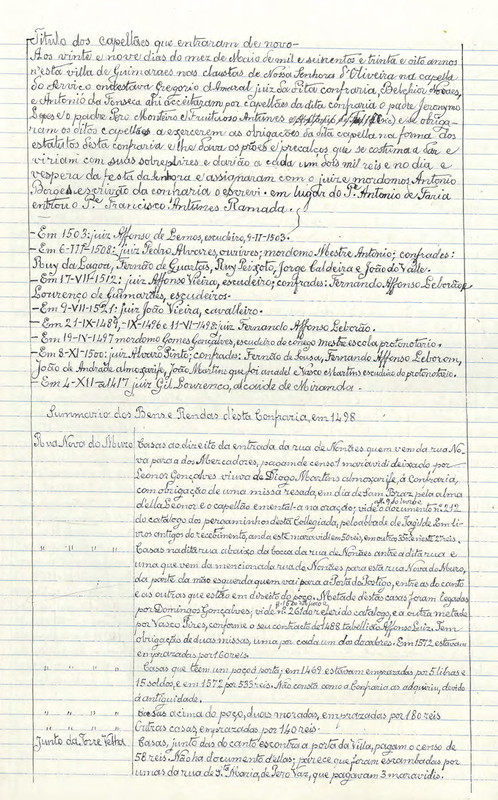 Titulo dos capellães que entraram de novo-
Aos vinte e nove dias do mez de Maio de mil e seiscentos e trinta e oito annos
n'esta villa de Guimaraes nas claustas de Nossa Senhora d'Oliveira na capella
do Serviço onde stava Gregorio d'Amaral juiz da dita confraria, Belchior Novaes,
e Antonio da Fonseca ahi acceitaram por capellães da dita confraria o padre Jeronymo
Lopes e o padre Tero Monteiro e Fruituioso Antunes e se obriga-
ram os ditos capellães a exercerem as obrigações da dita capella na forma dos
estatutos desta confraria e lhe dava os próes e precalços que se costuma a dar e
viriam com suas sobrepelizes e darião a cada um dois mil reis e no dia e
vespera da festa da Senhora e assignaram com o juiz e mordomos Antonio
Borges escrivão da confraria o escrevi. em lugar do Pe. Antonio de Faria
entrou o Pe. Francisco Antunes Ramada.
- Em 1503: juiz Affonso de Lemos, escudeiro, 9-II-1503.
- Em 6-III-1508: juiz Pedro Alvares, ourives; mordomo Mestre Antonio; confrades:
Ruy da Lagoa, Fernão de Guartas, Ruy Peixoto, Jorge Caldeira e João do Valle.
- Em 17-VII-1512: juiz Affonso Vieira, escudeiro; confrades: Fernando Affonso Leborão e
Lourenço de Guimarães, escudeiros.
- Em 9-VII-1521: juiz João Vieira, cavalleiro.
- Em 21-IX-1489, -IX-1496 e 11-VI-1498: juiz Fernando Affonso Leborão.
- Em 19-IV-1497 mordomo Gomes Gonçalves, escudeiro do conego mestre escola protonotario.
- Em 8-XI-1500: juiz Alvaro Pinto; confrades: Fernão de Sousa, Fernando Affonso Leborom,
João de Andrade almoxarife, João Martins que foi anadel Vasco Martins escudeiro do protonotario.
- Em 4-XII-1417 juiz Gil Lourenço, alcaide de Miranda.
Summario dos Bens e Rendas d'esta Confraria, em 1498
Rua Nova do Muro Casas ao direito da entrada da rua de Nonães quem vem da rua No-
va para a dos Mercadores, pagam de censo 1 maravidi deixado por
Leonor Gonçalves viuva de Diogo Martins almoxarife, á Confraria,
com obrigação de uma missa resada, em dia de Sam Braz, pela alma
della Leonor e o capellão ementa-a na oração; vide o documento nº 212
do catalogo dos pergaminhos desta Collegiada, pelo abbade de Tagilde. Em li-
vros antigos do recebimento, anda este maravidi em 50 reis, em outros 35
" " " Casas na dita rua abaixo da bocca da rua de Nonães entre a dita rua e
uma que vem da mencionada rua de Nonães para esta rua Nova do Muro,
da parte da mão esquerda quem vai para a Porta do Postigo, entre as do canto
e ás outras que estão em direito do poço. Metade destas casas foram legadas
por Domingos Gonçalves; vide nº 261 do referido catalogo, e a outra metade
por Vasco Pires, conforme o seu contracto de 1488 tabellião Affonso Luiz. Tem
obrigação de duas missas, uma por cada um dos doadores. Em 1572 estavam
emprazadas por 160 reis.
" " " Casas que teem um poço á porta; em 1469 estavam emprazadas por 5 libras e
15 soldos, e em 1572 por 535 reis. Não consta como a Confraria as adquiriu, devido
á antiguidade.
" " " Casas acima do poço, duas moradas, emprazadas por 180 reis
" " " Outras casas, emprazadas por 140 reis.
Junto da Torre Velha Casas, junto das do canto escontra a porta da Villa, pagam o censo de
58 reis. Não ha documento d'ellas; parece que foram escambadas por
umas da rua de Sta. Maria, de Pero Vaz, que pagavam 3 maravidis.